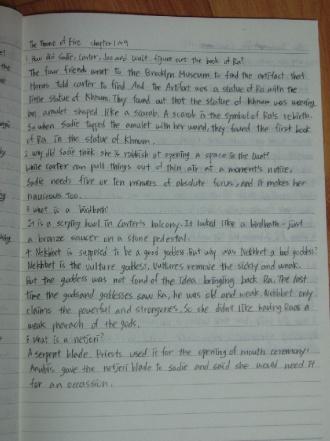 The Throne of Fire chapter 1~9
1. How did Sadie, Carter, Jaz and Walt figure out the book of Ra?
The four friend went to the Brooklyn Museum to find the artifact that
Horus told Carter to find. And the Artifact was a statue of Ra with the
little statue of Khnum. They found out that the statue of Khnum was wearing
an amulet shaped like a scarab. A scarab is the symbol of Ra's rebirth.
So when Sadie tapped the amulet with her wand, they found the first book
of Ra in the statue of Khnum.
2. why did Sadie think she is rubbish at opening a space in the Duat?
While Carter can pull things out of thin air at a moment's notice,
Sadie needs five or ten minutes of absolute focus, and it makes her
nauseous too.
3. What is a birdbath?
It is a scrying bowl in Carter's balcony. It looked like a birdbath- just
a bronze saucer on a stone pedestal.
4. Nekhbet is supposed to be a good goddess. But why was Nekhbet a bad goddess?
Nekhbet is the vulture goddess. Vultures remove the sickly and weak.
But the goddess was not fond of the idea bringing back Ra. The last
time the gods and goddesses saw Ra, he was old and weak. Nekhbet only
claims the powerful and strong ones. So she didn't like having Ra as a
weak pharaoh of the gods.
5. What is a netjeri?
A serpent blade. Priests used it for the opening of mouth ceremony.
Anubis gave the netjeri blade to Sadie and said she would need it
for an occassion.